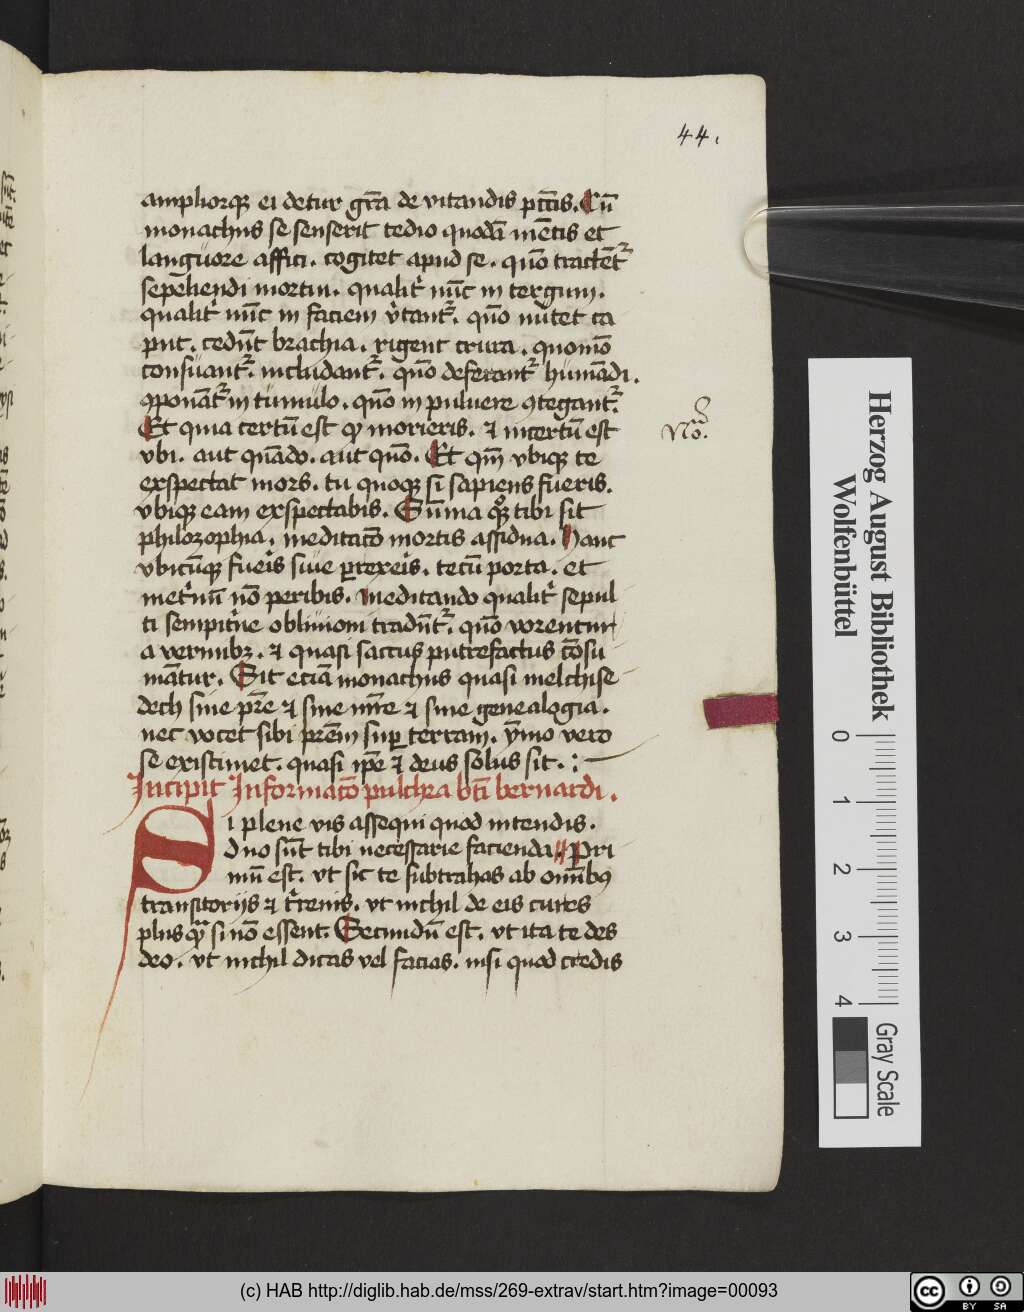 44.
ampliorq₃ ei detur gr̄a de vitandis pctīs. Cū
monachus se senserit tedio quodā mētis et
languore affici. cogitet apud se. quō tractent᷑
sepeliendi mortui. qualit᷑ nūc in tergum.
qualit᷑ nūc in faciem v᷑tant᷑. quō nutet ca
put. cedūt brachia. rigent crura. quomō
consuant᷑. includant᷑. quō deferant᷑ humādi.
ꝯponāt᷑ in tumulo. quō in puluere ꝯtegant᷑.
Et quia certū est ꝙ morieris. ⁊ incertū est
No.
vbi. aut quādo. aut quō. Et qm̄ vbiq₃ te
exspectat mors. tu quoq₃ si sapiens fueris.
vbiq₃ eam exspectabis. Sūma g° tibi sit
philozophia. meditacō mortis assidua. Hanc
vbicūq₃ fuēis siue ꝑrexēis. tecū porta. et
inet᷑nū nō peribis. Meditando qualit᷑ sepul
ti sempit᷑ne obliuioni tradūt᷑. quō vorentur
a vermib₃. ⁊ quasi saccus putrefactus cōsu
mātur. Sit eciā monachus quasi melchise
dech sine pr̄e ⁊ sine mr̄e ⁊ sine genealogia.
nec vocet sibi prēm sup terram. ymo vero
se existimet. quasi ip̄e ⁊ deus solus sit.
Incipit Informacō pulchra btī bernardi.
Si plene vis assequi quod intendis.
duo sūt tibi necessarie facienda. Pri
mū est. vt sic te subtrahas ab omībꝰ
transitorijs ⁊ t᷑renis. vt nichil de eis cures
plus qͣ si nō essent. Secundū est. vt ita te des
deo. vt nichil dicas vel facias. nisi quod credis
Herzog August Bibliothek
Wolfenbüttel
0 1 2 3 4
Gray Scale
(c) HAB http://diglib.hab.de/mss/269-extrav/start.htm?image=00093
cc BY SA